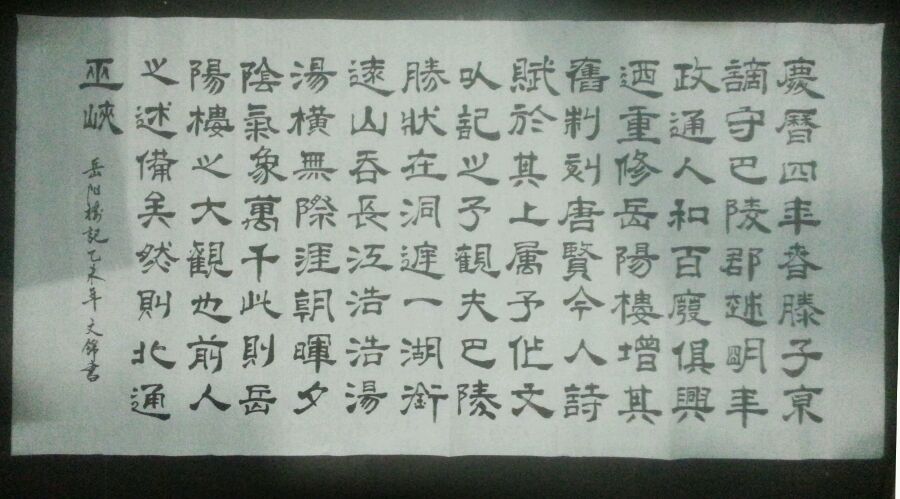 慶曆四年春滕子京
謫守巴陵郡越明年
政通人和百廢俱興
迺重修岳陽樓增其
舊制刻唐賢今人詩
賦於其上属予作文
以記之予觀夫巴陵
勝狀在洞庭一湖銜
遠山吞長江浩浩湯
湯橫無際涯朝暉夕
陰氣象萬千此則岳
陽樓之大觀也前人
之述備矣然則北通
巫峽
岳阳樓記乙未年文錦書